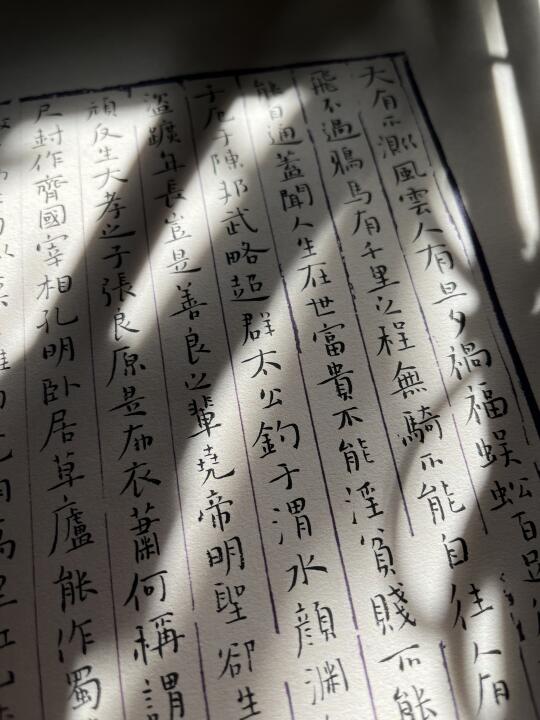 天有不測風雲人有旦夕禍福蜈蚣百足
飛不過鴉馬有千里之程無騎不能自往人有
能自通蓋聞人生在世富貴不能淫貧賤不能
子厄于陳邦武略超群太公釣于渭水顏淵
盜蹠年長豈是善良之輩堯帝明聖卻生
頑反生大孝之子張良原是布衣蕭何稱謂
尺封作齊國宰相孔明臥居草廬能作蜀